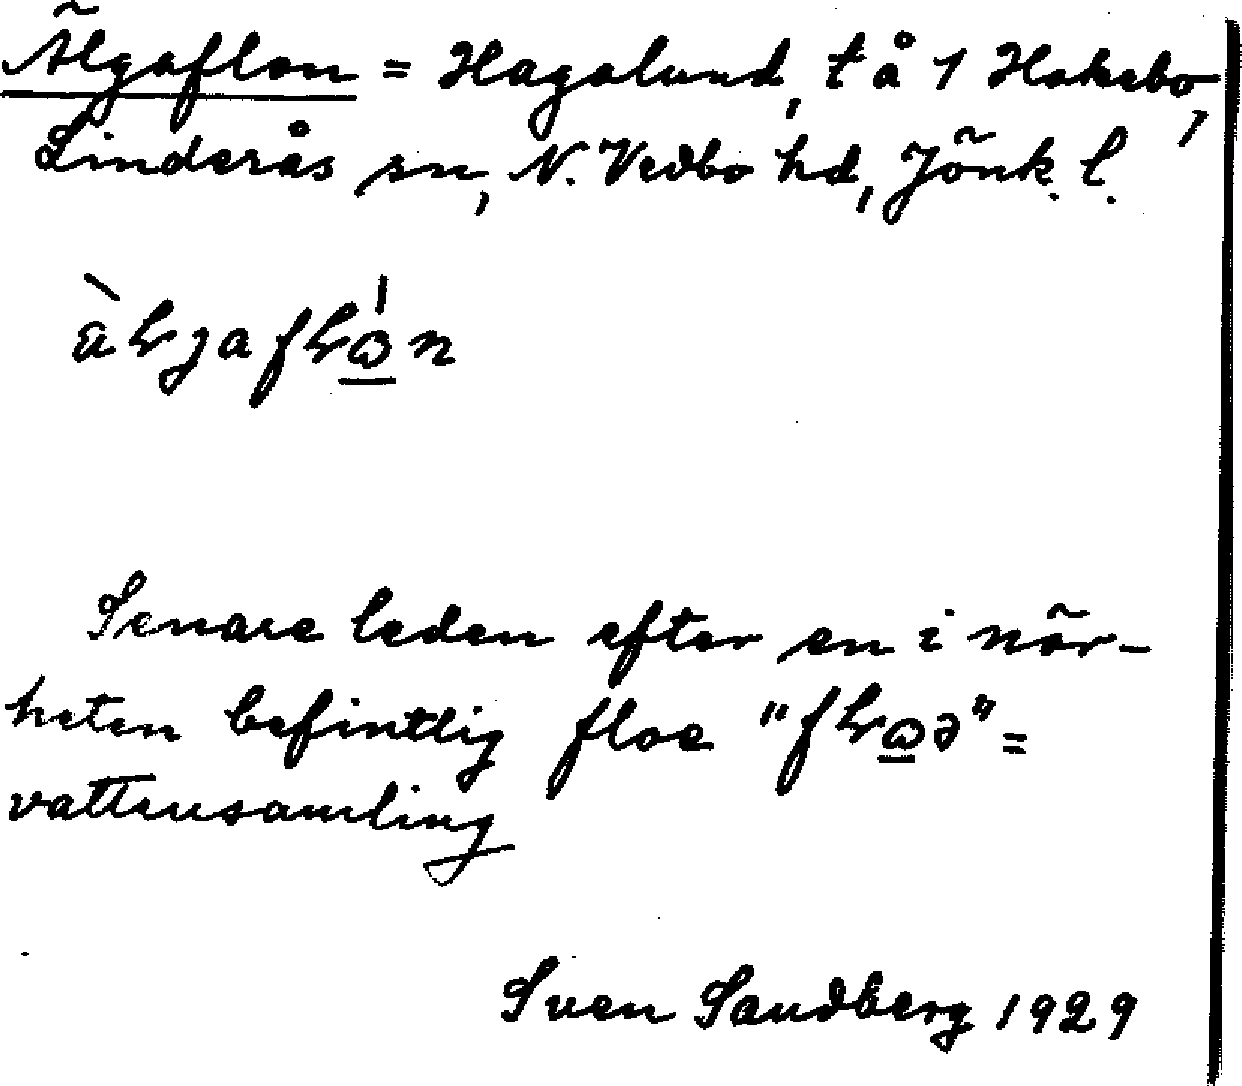 Älgaflon = Hagalund, t å 1 Hakebo,
Linderås sn, N. Vedbo hd, Jönk. l.
Senare leden efter en i när-
heten befintlig floe " " =
vattensamling
Sven Sandberg 1929